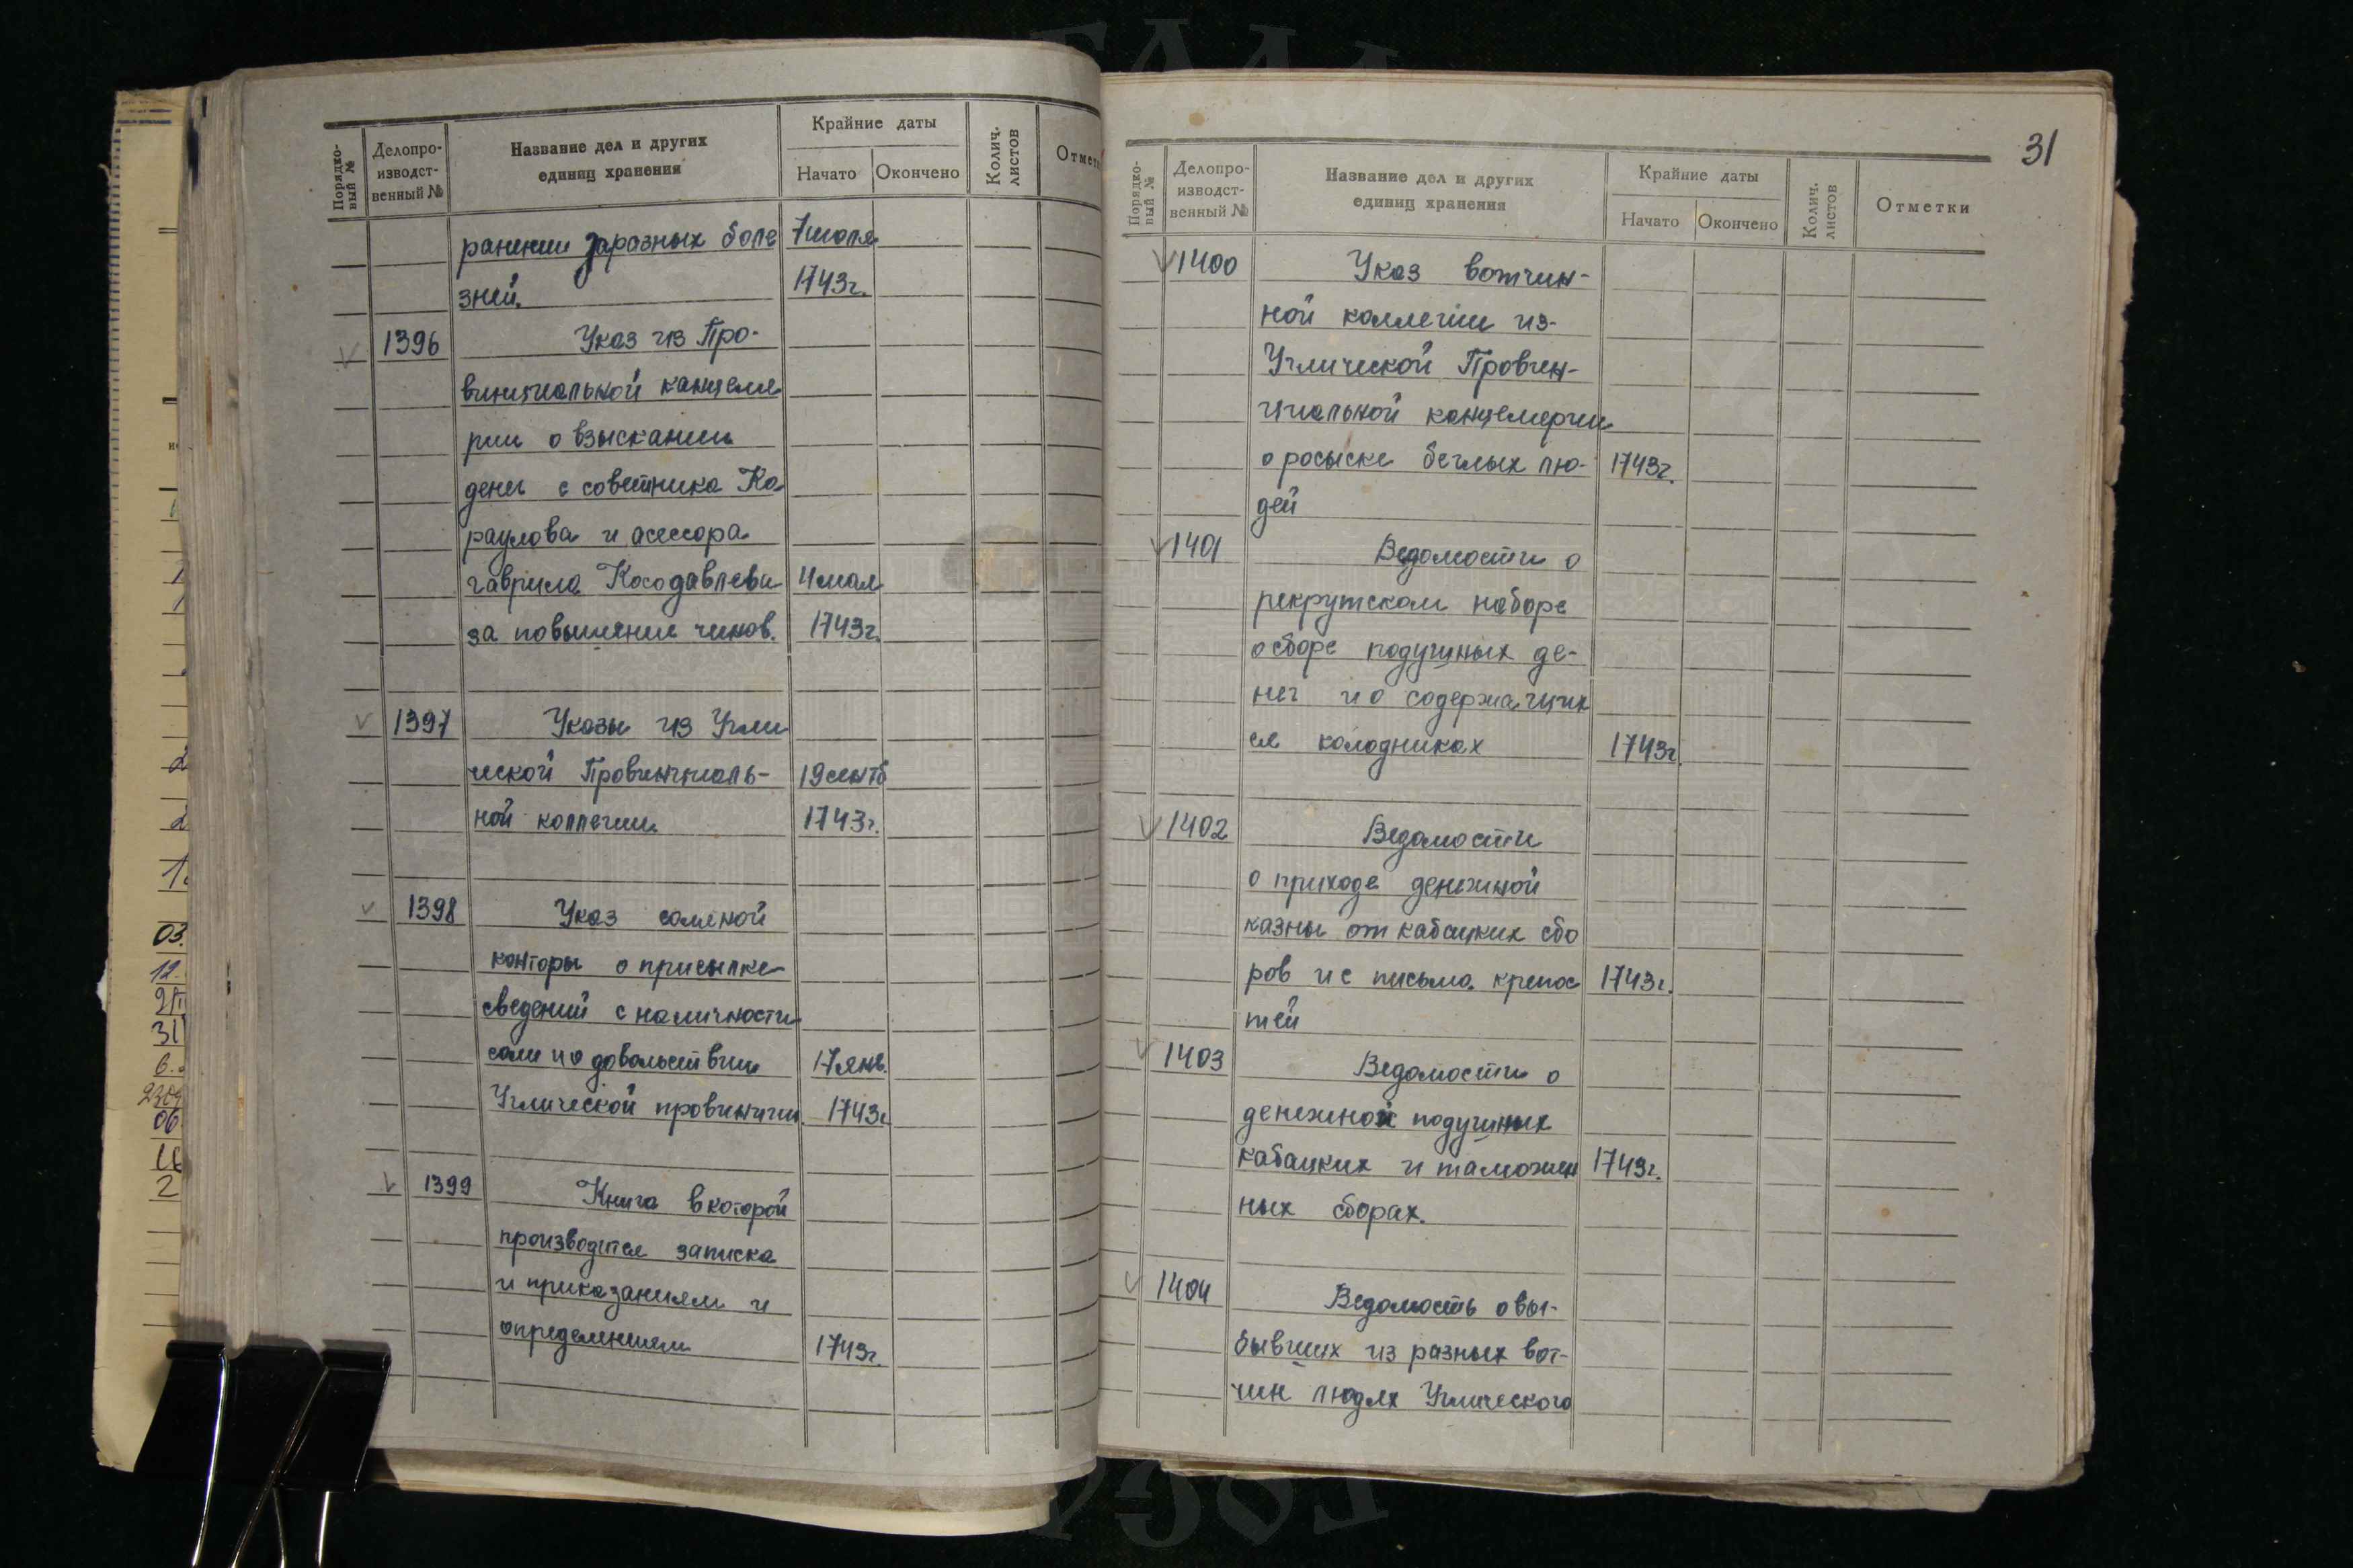 Порядко-
вый №
Делопро-
изводст-
венный №
Название дел и других
единиц хранения
Крайние даты
Начато Окончено
Колич.
листов
Отмет
ранении заразных боле 7 июля
зней. 1743г.
1396 Указ из Про-
винциальной канцеля
рии о взыскании
денег с советника Ка
раулова и асессора
гаврила Косодавлева 4 мая
за повышение чинов. 1743г.
1397 Указы из Угли
ческой Провинциаль- 19 сентб
ной коллегии. 1743г.
1398 Указ соляной
конторы о присылке
сведений с наличности
соли и о довольствии 17 янв.
Углической провинции. 1743г.
1399 Книга в которой
производится записка
и приказаниям и
определениям 1743г.
31
Порядко-
вый №
Делопро-
изводст-
венный №
Название дел и других
единиц хранения
Крайние даты
Начато Окончено
Колич.
листов
Отметки
1400 Указ вотчин-
ной коллегии из-
Углической Провин-
циальной канцелярии
о росыске беглых лю- 1743г.
дей
1401 Ведомости о
рекрутском наборе
о сборе подушных де-
нег и о содержащих
ся колодниках 1743г.
1402 Ведомости
о приходе денежной
казны от кабацких сбо
ров и с письма крепос 1743г.
тей
1403 Ведомости о
денежной подушных
кабацких и таможен 1743г.
ных сборах.
1404 Ведомость о вы-
бывших из разных вот-
чин людях Углического